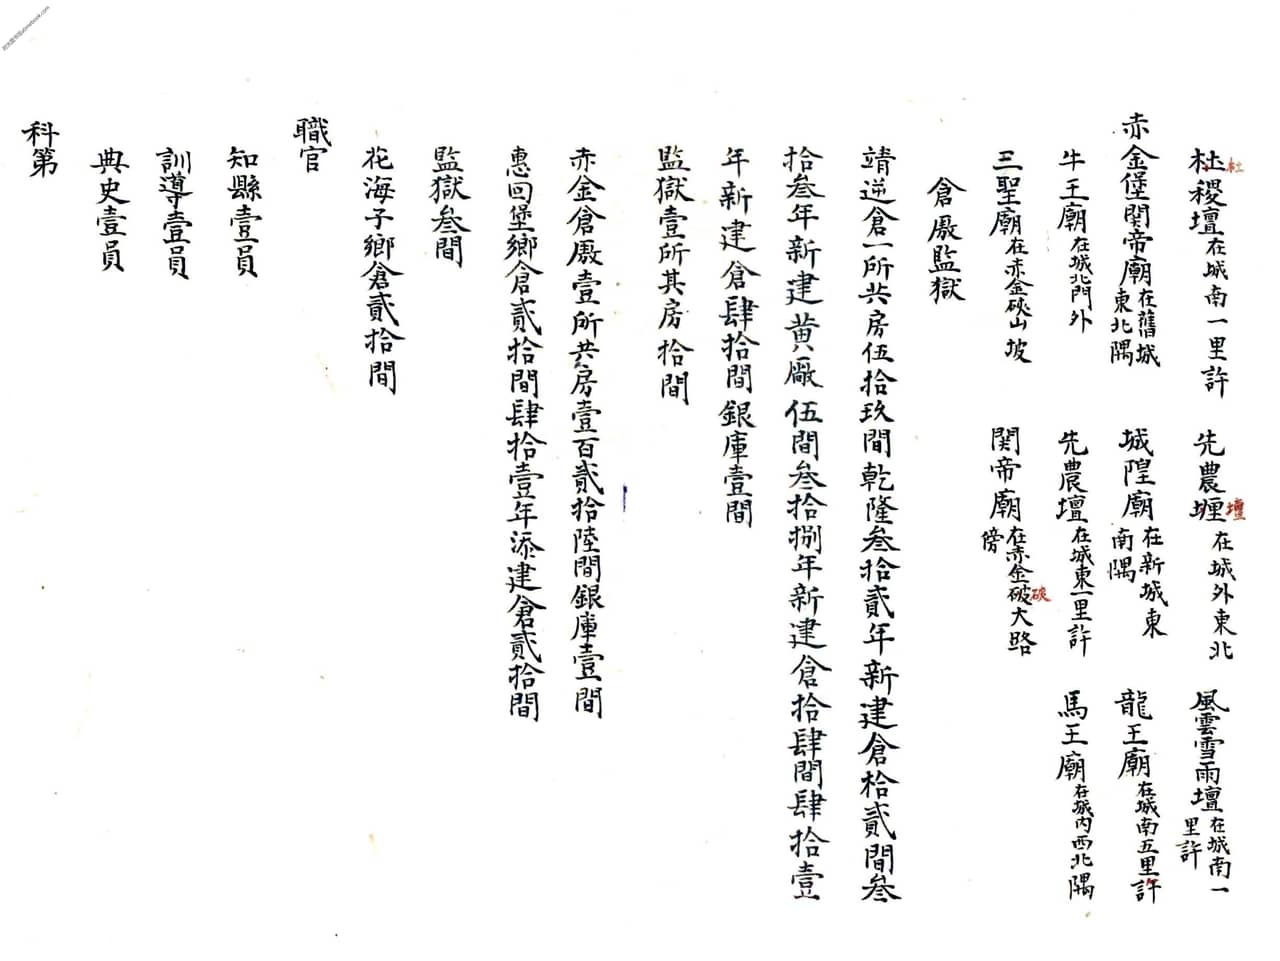 杜稷壇在城南一里許 先農堰在城外東北 風雲雪雨壇在城南一里許
杜
壇
赤金堡関帝廟在舊城東北隅 城隍廟在新城東南隅 龍王廟在城南五里許
牛王廟在城北門外 先農壇在城東一里許 馬王廟在城内西北隅
三聖廟在赤金硤山坡 関帝廟在赤金破大路傍
硤
倉厫監獄
靖逆倉一所共房伍拾玖間乾隆叁拾貳年新建倉拾貳間叁
拾叁年新建黄厰伍間叁拾捌年新建倉拾肆間肆拾壹
年新建倉肆拾間銀庫壹間
監獄壹所其房拾間
赤金倉厫壹所共房壹百貳拾陸間銀庫壹間
惠回堡鄉倉貳拾間肆拾壹年添建倉貳拾間
監獄叁間
花海子鄉倉貳拾間
職官
知縣壹員
訓導壹員
典史壹員
科第